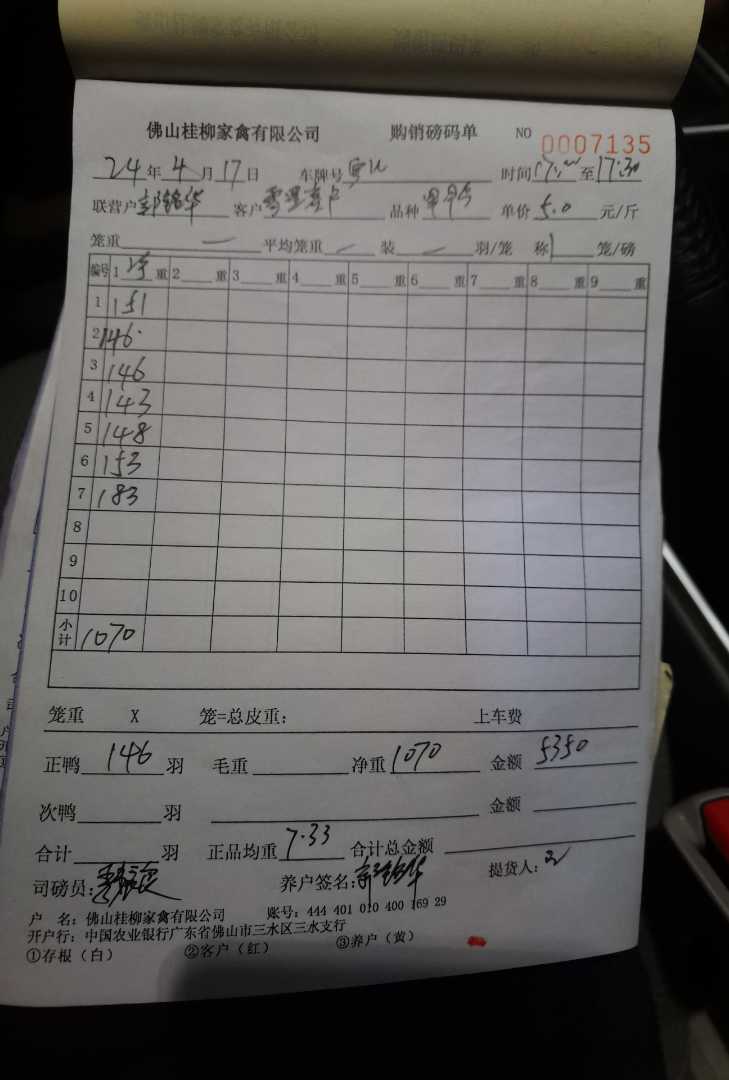 佛山桂柳家禽有限公司 购销磅码单 NO 0007135
24年4月17日 车牌号 时间17:00至17:30
联营户 郭铭华 客户 品种 单价5.0元/斤
笼重 — 平均笼重 — 装 — 羽/笼 称1笼/磅
编号 1净重 2重 3重 4重 5重 6重 7重 8重 9重
1 151
2 146
3 146
4 143
5 148
6 153
7 183
8
9
10
小计 1070
笼重 X 笼=总皮重： 上车费
正鸭146羽 毛重 净重1070 金额5350
次鸭 羽 金额
合计 羽 正品均重7.33 合计总金额
司磅员： 养户签名：郭铭华 提货人：
户 名：佛山桂柳家禽有限公司 账号：444 401 010 400 169 29
开户行：中国农业银行广东省佛山市三水区三水支行
①存根（白） ②客户（红） ③养户（黄）